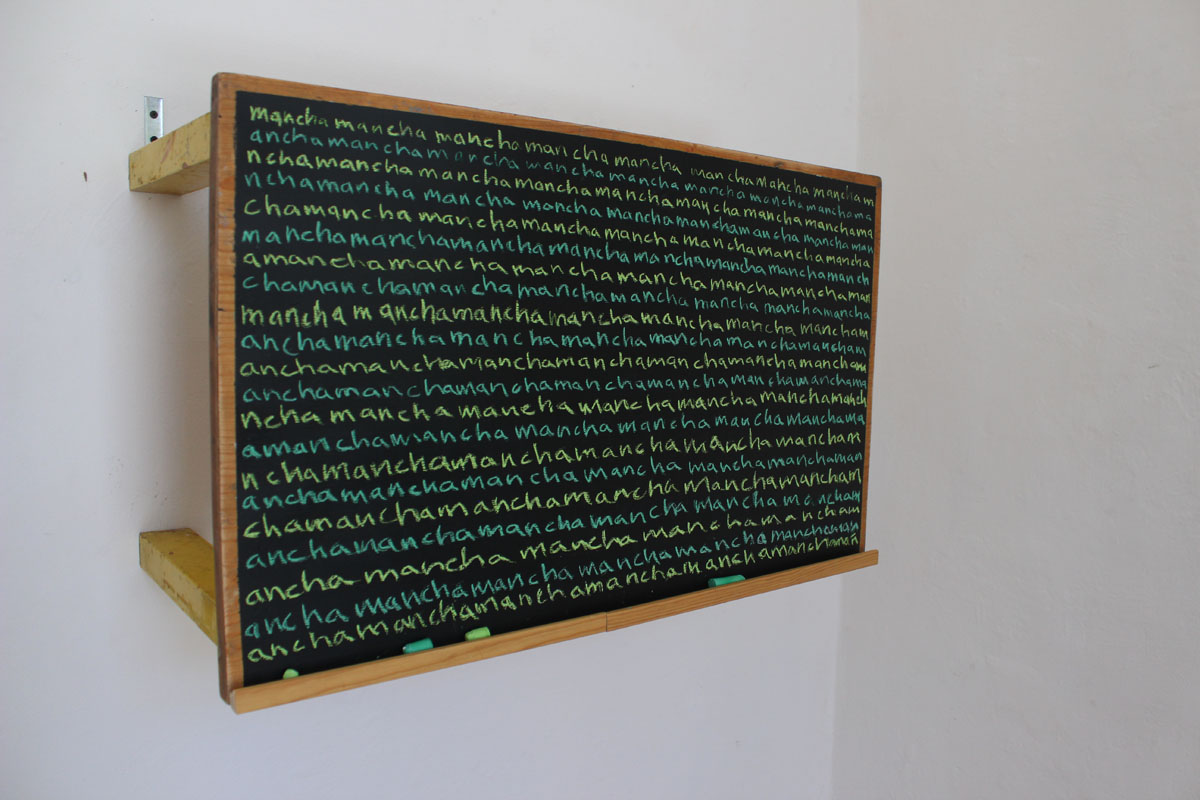 manchamancha manchamancha mancha manchamancha mancham
anchamanchamancha manchamancha manchamanchamanchama
nchamancha manchamanchamanchamanchamanchamancha
nchamancha mancha manchamanchamanchamancha manchaman
chamancha manchamanchamancha manchamanchamancha
manchamanchamanchamanchamanchamanchamanchamanch
amanchamancha manchamanchamanchamanchamanchaman
chamanchamanchamanchamanchamancha manchamancha
mancha manchamanchamanchamanchamancha mancham
anchamanchamanchamanchamanchamanchamanchamancham
anchamanchamanchamanchamanchamanchamanchamancham
anchamanchamanchamanchamanchamanchamanchamanchama
ncha mancha mancha manchamanchamancha manchamanch
amanchamancha manchamanchamanchamanchamanchama
nchamanchamanchamanchamanchamanchamancham
anchamanchamanchamanchamancha manchamanchaman
chamanchamanchamanchamancha manchamancham
anchamanchamanchamanchamanchamanchamancham
ancha mancha manchamanchamanchamancham
ancha manchamanchamanchamanchamanchamanchaman
anchamanchamanchamanchamanchamanchamanchaman